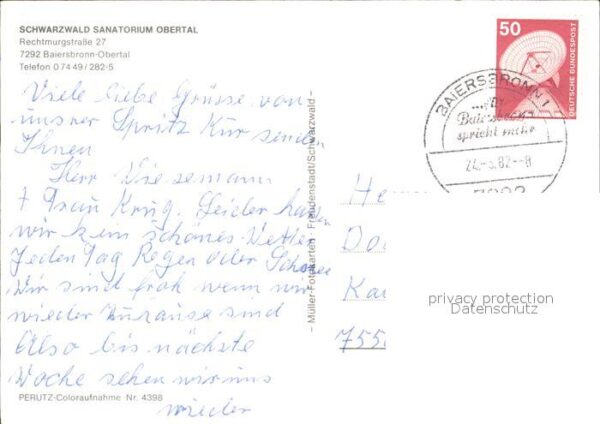 SCHWARZWALD SANATORIUM OBERTAL
Rechtmurgstraße 27
7292 Baiersbronn-Obertal
Telefon 0 74 49 / 282-5
Viele liebe Grüsse von
unsrer Spritz Kur senden
Ihnen
Herr Wiesemann
+ Frau Krug. Leider haben
wir kein schönes Wetter
Jeden Tag Regen oder Schnee
Wir sind froh wenn wir
wieder zuhause sind
Also bis nächste
Woche sehen wir uns
wieder
PERUTZ-Coloraufnahme Nr. 4398
– Müller-Fotokarten · Freudenstadt/Schwarzwald –
50
DEUTSCHE BUNDESPOST
BAIERSBRONN 1
Baiersbronn
spricht mehr
82--8
7292
He
Do
Ka
755
privacy protection
Datenschutz